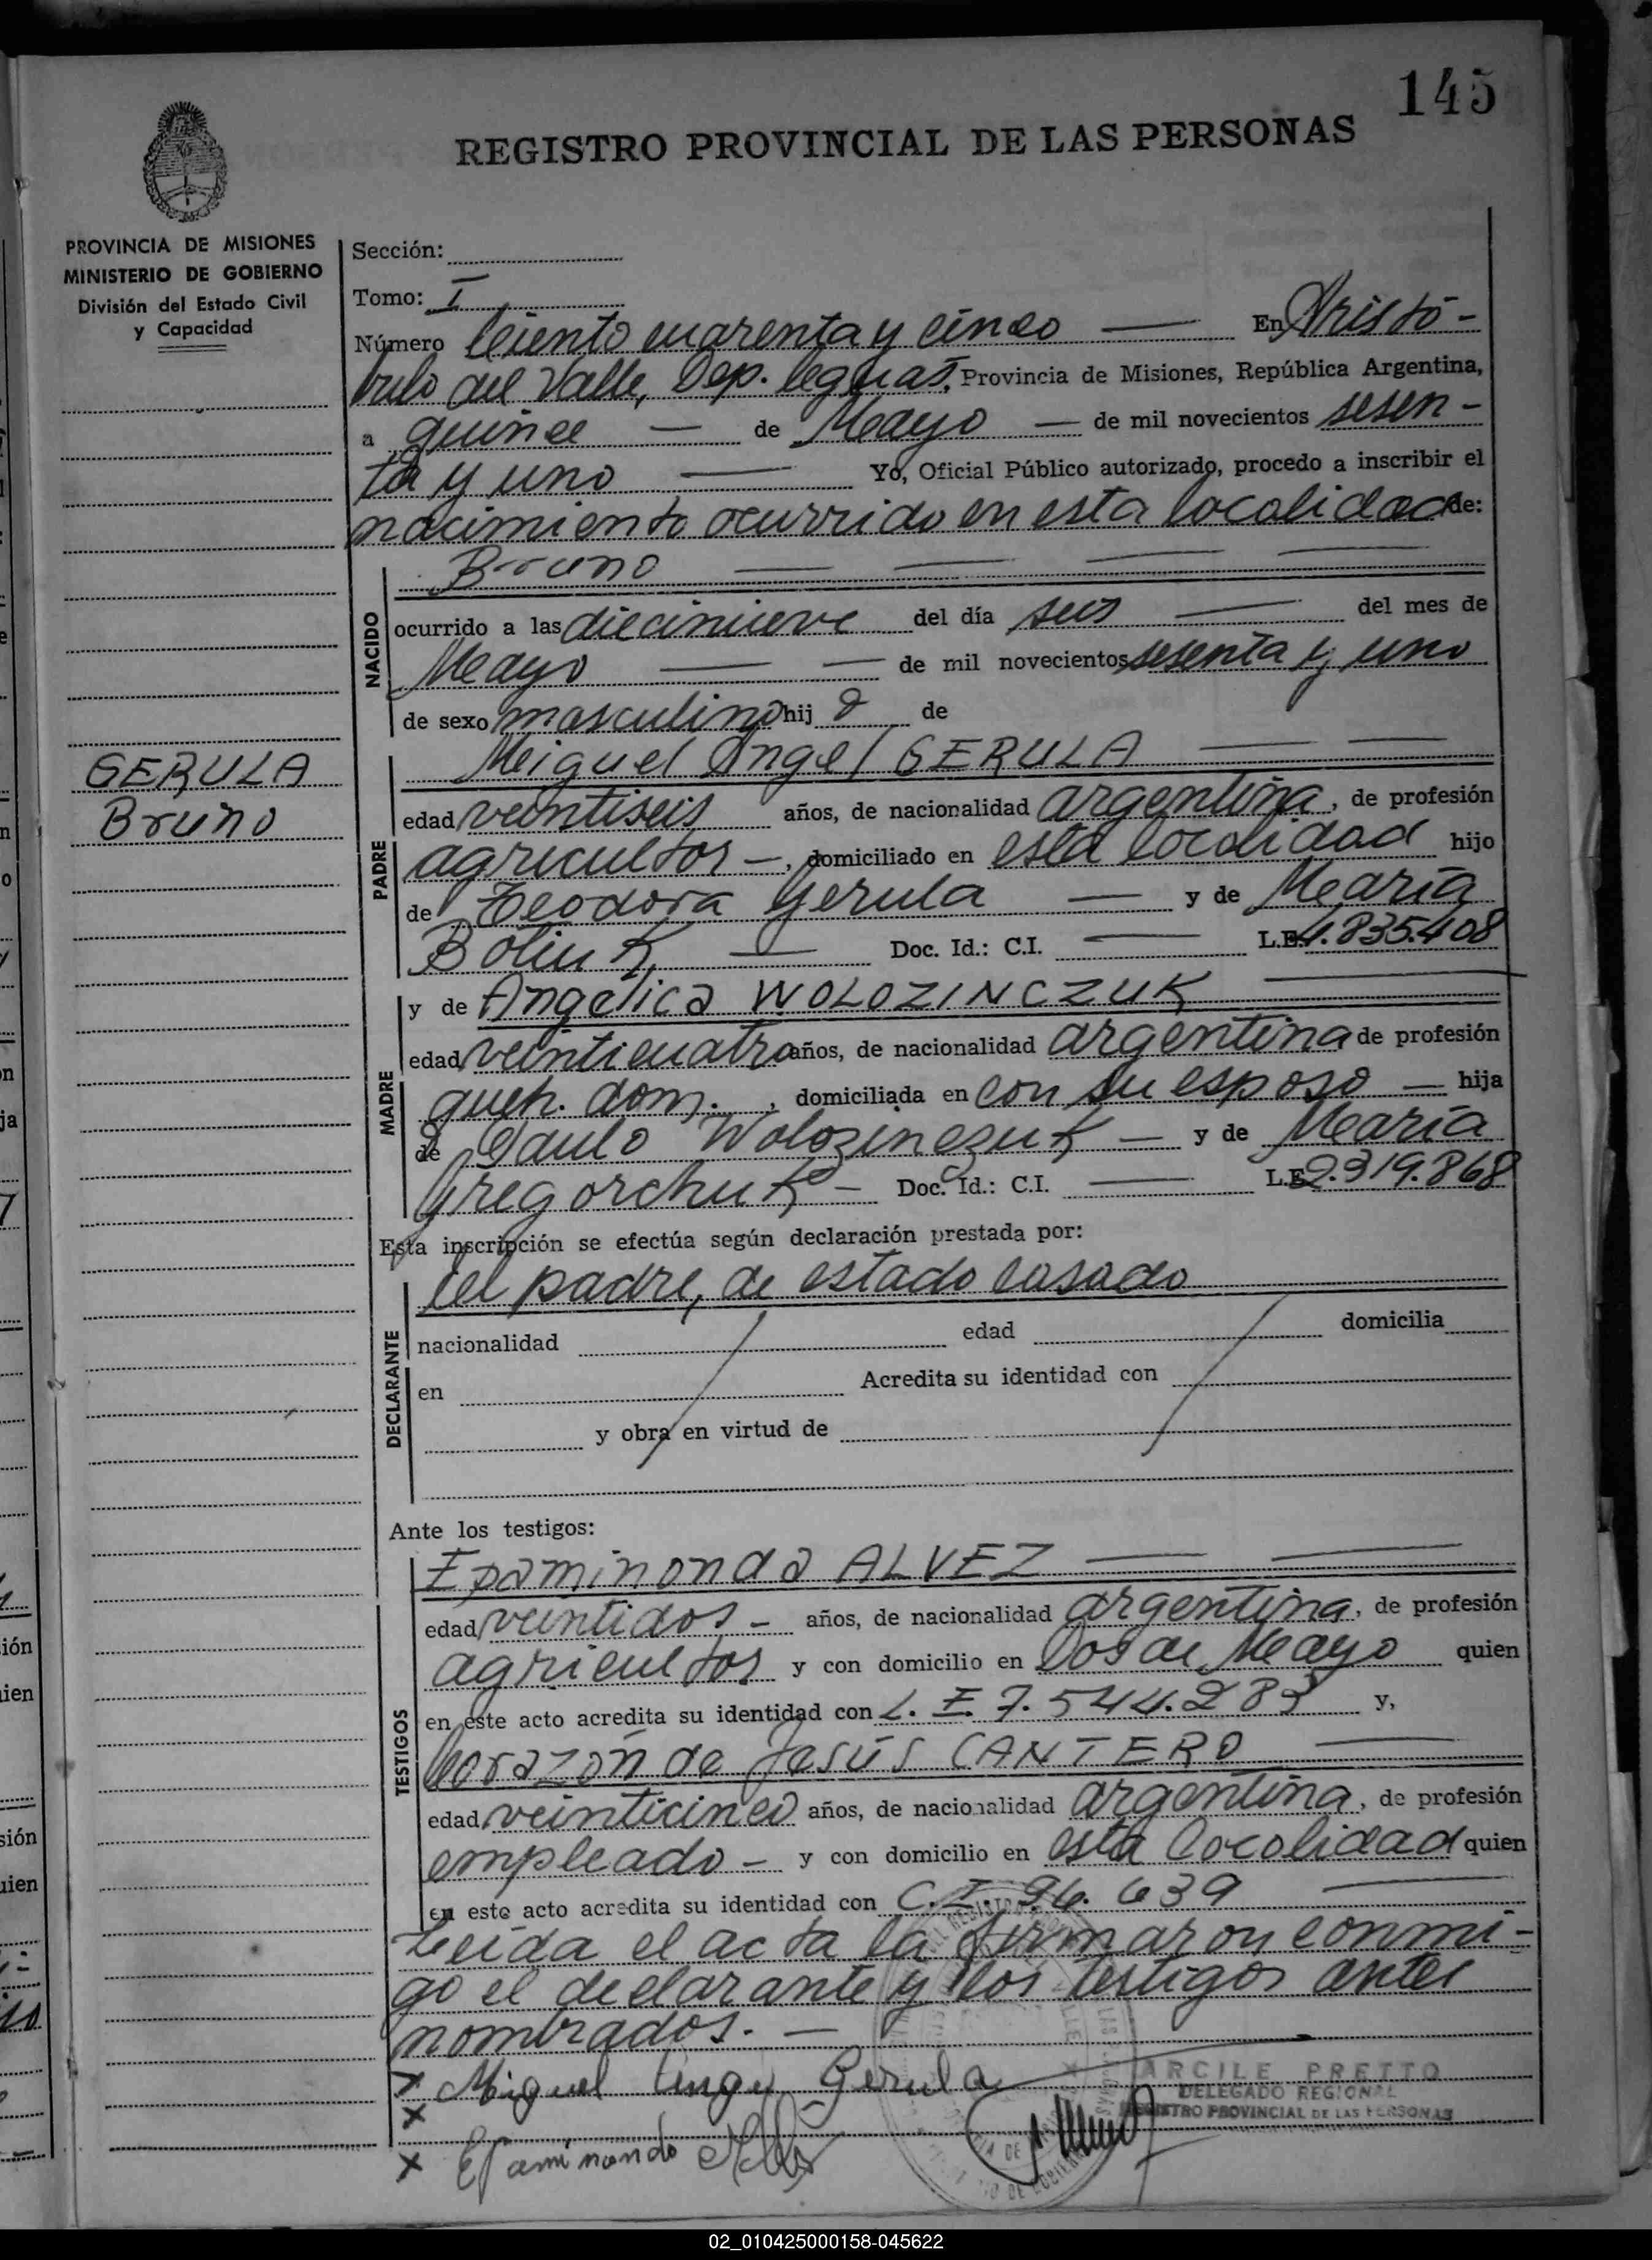 145
REGISTRO PROVINCIAL DE LAS PERSONAS
PROVINCIA DE MISIONES
MINISTERIO DE GOBIERNO
División del Estado Civil
y Capacidad
Sección:
Tomo: I
Número Ciento cuarenta y cinco — En Aristó-
bulo del Valle, Dep. Cgúas, Provincia de Misiones, República Argentina,
a quince — de Mayo — de mil novecientos sesen-
ta y uno — Yo, Oficial Público autorizado, procedo a inscribir el
nacimiento ocurrido en esta localidad de:
NACIDO
Bruno — — — —
ocurrido a las diecinueve del día seis — del mes de
Mayo — — de mil novecientos sesenta y uno
de sexo masculino hij o de
GERULA
Bruno
PADRE
Miguel Angel GERULA — —
edad veintiseis años, de nacionalidad argentina, de profesión
agricultor —, domiciliado en esta localidad hijo
de Teodora Gerula — y de María
Boliuk — Doc. Id.: C.I. — L.E. 4.835.408
MADRE
y de Angélica WOLOZINCZUK —
edad veinticuatro años, de nacionalidad argentina de profesión
queh. dom. , domiciliada en con su esposo — hija
de Paulo Wolozinczuk — y de María
Gregorchuk — Doc. Id.: C.I. — L.E. 2.319.868
Esta inscripción se efectúa según declaración prestada por:
DECLARANTE
el padre, de estado casado
nacionalidad edad domicilia
en Acredita su identidad con
y obra en virtud de
Ante los testigos:
TESTIGOS
Epaminonda ALVEZ — —
edad veintidos — años, de nacionalidad argentina, de profesión
agricultor y con domicilio en Dos de Mayo quien
en este acto acredita su identidad con L. E. 7.544.283 y,
Corazón de Jesús CANTERO —
edad veinticinco años, de nacionalidad argentina, de profesión
empleado — y con domicilio en esta localidad quien
en este acto acredita su identidad con C.I. 96.639 —
Leída el acta la firmaron conmi-
go el declarante y los testigos antes
nombrados. —
x Miguel Angel Gerula
x
ARCILE PRETTO
DELEGADO REGIONAL
REGISTRO PROVINCIAL DE LAS PERSONAS
x Epaminondo
02_010425000158-045622